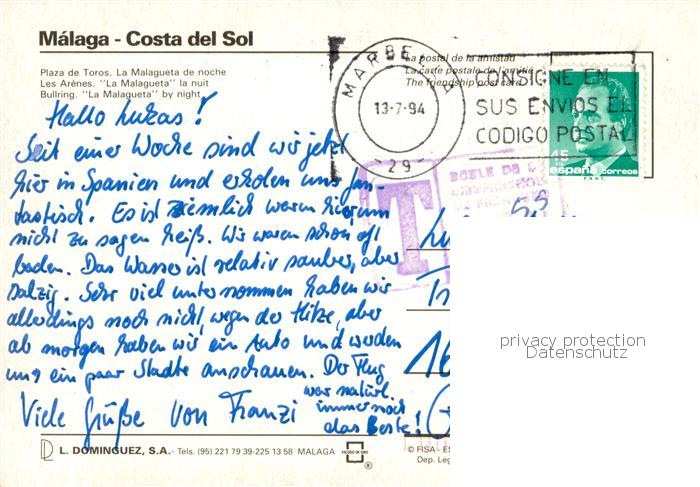 Málaga - Costa del Sol
Plaza de Toros. La Malagueta de noche
Les Arènes. "La Malagueta" la nuit
Bullring. "La Malagueta" by night
La postal de la amistad
La carte postale de l'amitié
The friendship post card
MARBELLA
13-7-94
29
CONSIGNE EN
SUS ENVIOS EL
CODIGO POSTAL
45
españa correos
T
Hallo Lukas!
Seit einer Woche sind wir jetzt
hier in Spanien und erholen uns fan-
tastisch. Es ist ziemlich warm
nicht zu sagen heiß. Wir waren schon oft
baden. Das Wasser ist relativ sauber, aber
salzig. Sehr viel unternommen haben wir
allerdings noch nicht, wegen der Hitze, aber
ab morgen haben wir ein Auto und werden
uns ein paar Städte anschauen. Der Flug
war natürl.
immer noch
das Beste!
Viele Grüße von Franzi
privacy protection
Datenschutz
L. DOMINGUEZ, S.A. - Tels. (95) 221 79 39-225 13 58 MALAGA
ESCUDO DE ORO
®
© FISA - ES
Dep. Leg